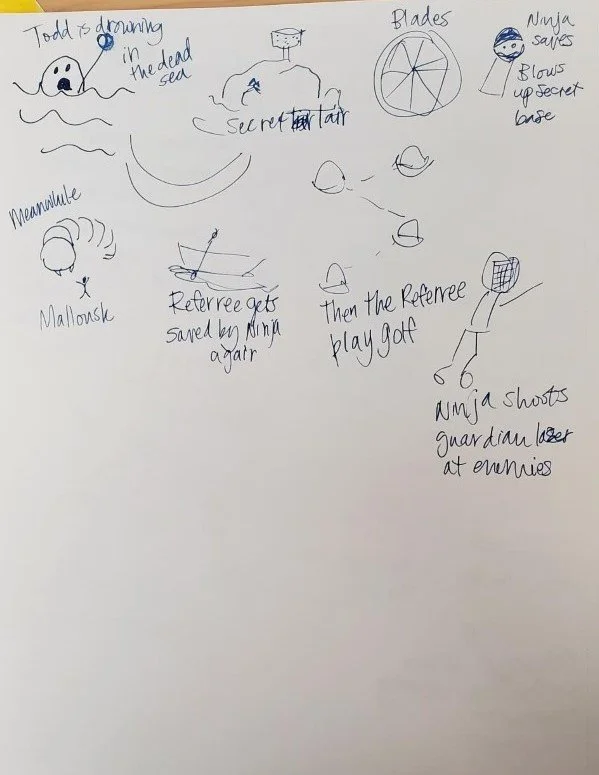 Todd is drowning
in
the dead
sea
Secret lair
Blades
Ninja
saves
Blows
up secret
base
Meanwhile
Mallousk
Referree gets
saved by Ninja
again
Then the Referree
play golf
Ninja shoots
guardian laser
at enemies